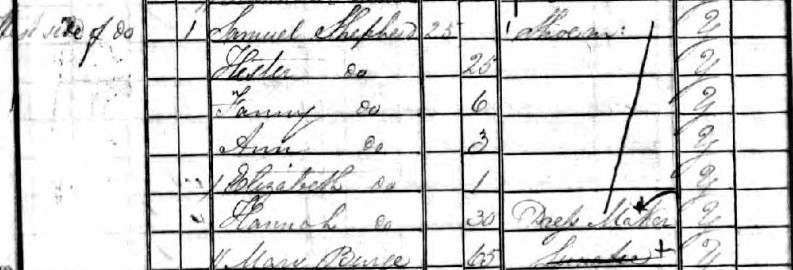 side of do 1 Samuel Shepherd 25 Shoem: Y
Hester do 25 Y
Fanny do 6 Y
Ann do 3 Y
Elizabeth do 1 Y
Hannah do 30 Dress Maker Y
Mary 65 Y